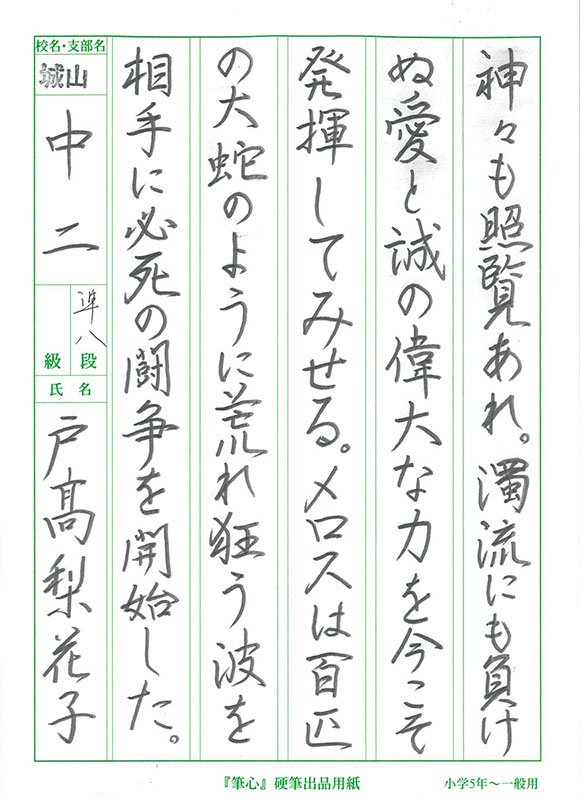 神々も照覧あれ。濁流にも負け
ぬ愛と誠の偉大な力を今こそ
発揮してみせる。メロスは百匹
の大蛇のように荒れ狂う波を
相手に必死の闘争を開始した。
校名・支部名
城山
中二
準八
段
級
氏名
戸髙梨花子
『筆心』硬筆出品用紙
小学5年〜一般用